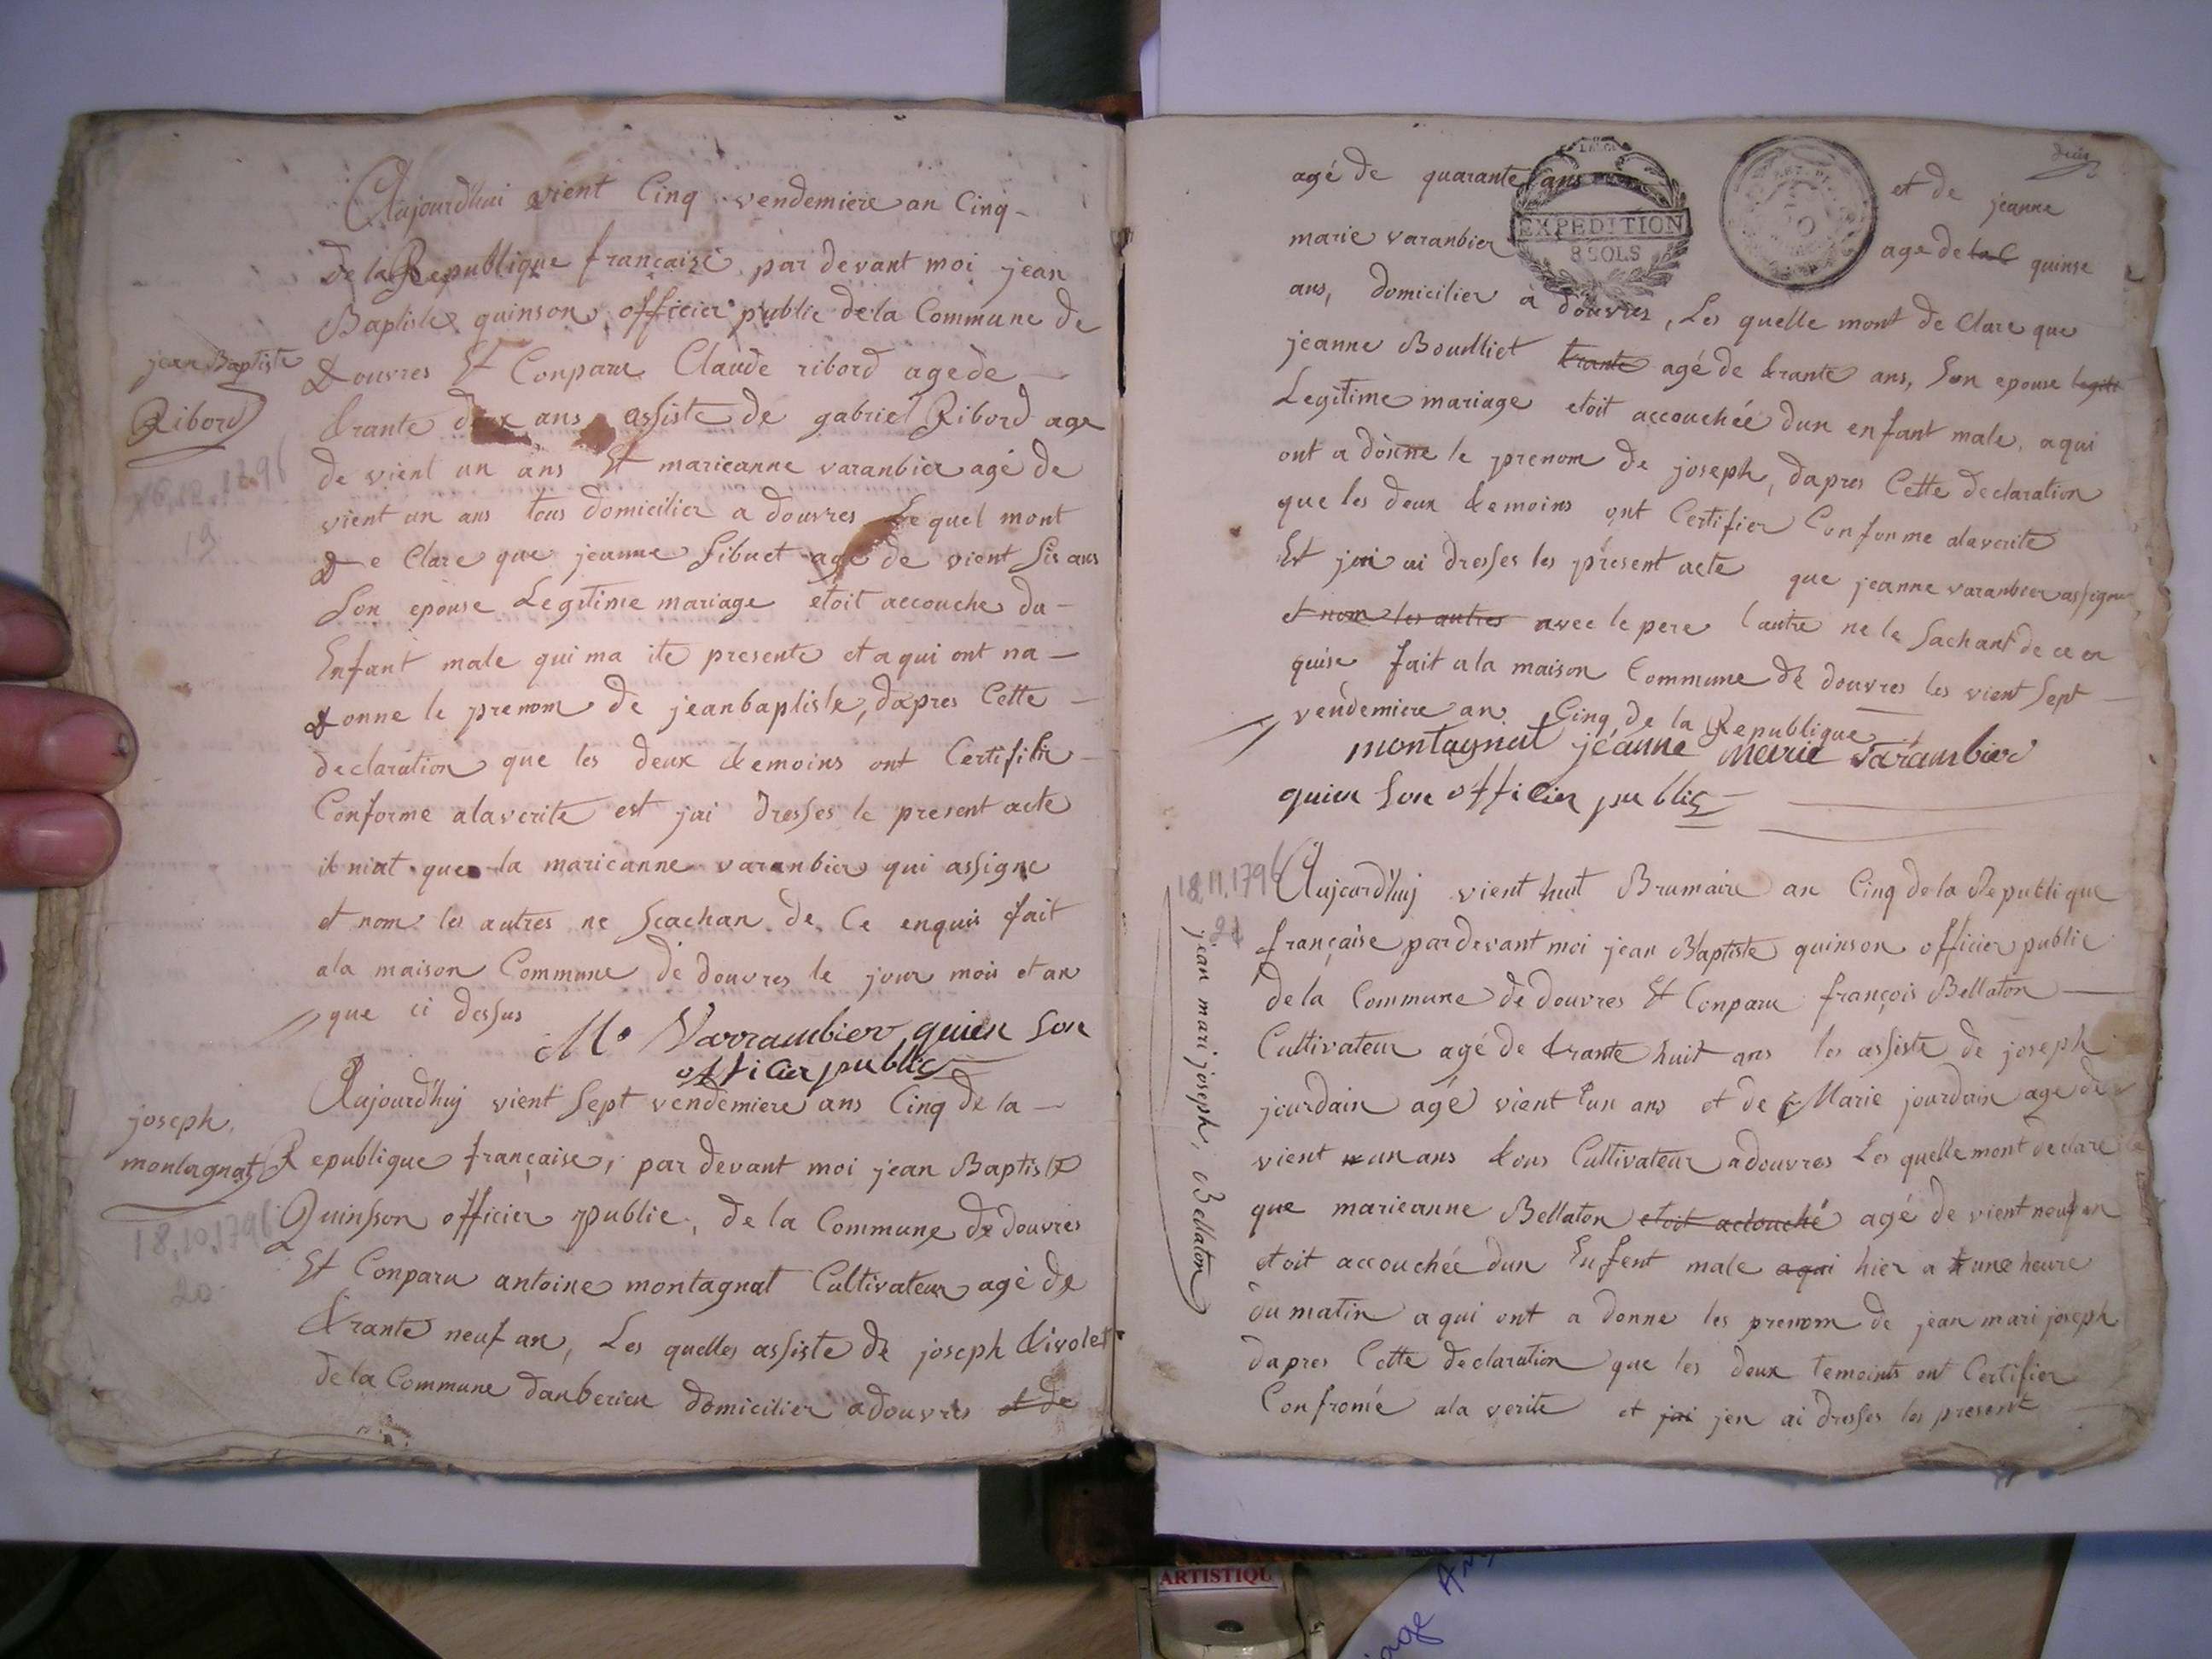 Aujourdhui vient Cinq vendemiere an Cinq
de la Republique française, par devant moi jean
Baptiste quinson officier public de la Commune de
jean Baptiste
Ribord
douvres Et Conparu Claude ribord age de
trante deux ans assiste de gabriel Ribord age
de vient un ans Et marieanne varanbier agé de
vient un ans tous domicilier a douvres Lequel mont
de Clare que jeanne Sibuet age de vient sis ans
Son epouse Legitime mariage etoit accouche du
Enfant male qui ma ite presente et a qui ont na
donne le prenom de jeanbaptiste, dapres Cette
declaration que les deux temoins ont Certifier
Conforme alaverite est jai dresses le present acte
il niat que la marieanne varanbier qui assigne
et nom les autres ne Scachan de Ce enquis fait
ala maison Commune de douvres le jour mois et an
que ci dessus
Me Varrambier quien Son
officier public
joseph
montagnat
18.10.1796
20
Aujourdhuy vient Sept vendemiere ans Cinq de la
Republique française, par devant moi jean Baptiste
Quinsson officier public, de la Commune de douvres
Et Conparu antoine montagnat Cultivateur agé de
trante neuf an, Les quelles assiste de joseph tivolet
de la Commune danberieu domicilier a douvres et de
deux
agé de quarante ans et de jeanne
EXPEDITION
8 SOLS
marie varanbier age de quinse
ans, domicilier a douvres, Les quelle mont de Clare que
jeanne Boulliet trante agé de trante ans, Son epouse legiti
Legitime mariage etoit accouchée dun enfant male, a qui
ont a donne le prenom de joseph, dapres Cette declaration
que les deux temoins ont Certifier Conforme alaverite
Et jen ai dresses les présent acte que jeanne varanbier assigne
et nom les autres avec le pere lautre ne le Sachant de ce en
quise fait a la maison Commune de douvres les vient Sept
vendemiere an Cinq de la Republique
montagnat jeanne marie varambier
quien Son officier public
18.11.1796
21
jean mari joseph, Bellaton
Aujourdhuy vient huit Brumaire an Cinq de la Republique
française par devant moi jean Baptiste quinson officier public
de la Commune de douvres Et Conparu françois Bellaton
Cultivateur agé de trante huit ans les assiste de joseph
jourdain agé vient un ans et de Marie jourdain age de
vient un ans tous Cultivateur adouvres Les quelle mont declare
que marieanne Bellaton etoit accouché agé de vient neuf an
etoit accouchée dun Enfent male a qui hier a une heure
du matin a qui ont a donne les prenom de jean mari joseph
dapres Cette declaration que les deux temoints ont Certifier
Confromé ala verite et jai jen ai dresses les present
ARTISTIQU